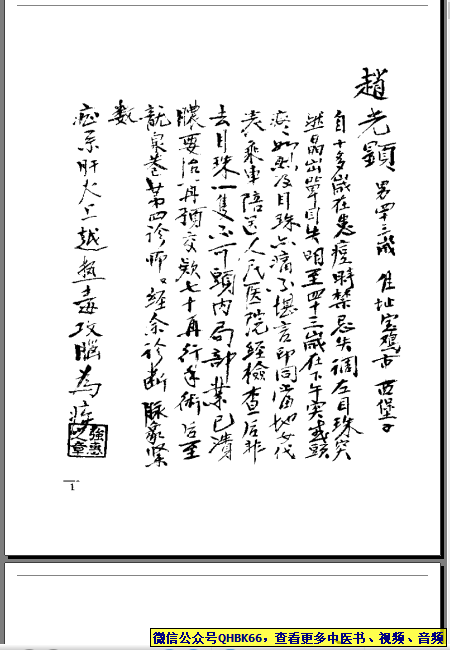 趙光顕 男四十三歳 住址宝鸡市西堡子
自十多歲在患痘時禁忌失调左目珠突
然晶出單目失明至四十三歲在下午突感頭
疼如烈及目珠亦痛不堪言即同當地女代
表乘車陪送人民医院經檢查后非
去目珠一隻不可頭内局部業已潰
膿要治再預交欵七十再行手術后至
龍泉巷第四診所經余診断脉象緊
数
症系肝火上越热毒攻腦為疾
強惠
之章
1
微信公众号QHBK66，查看更多中医书、视频、音频